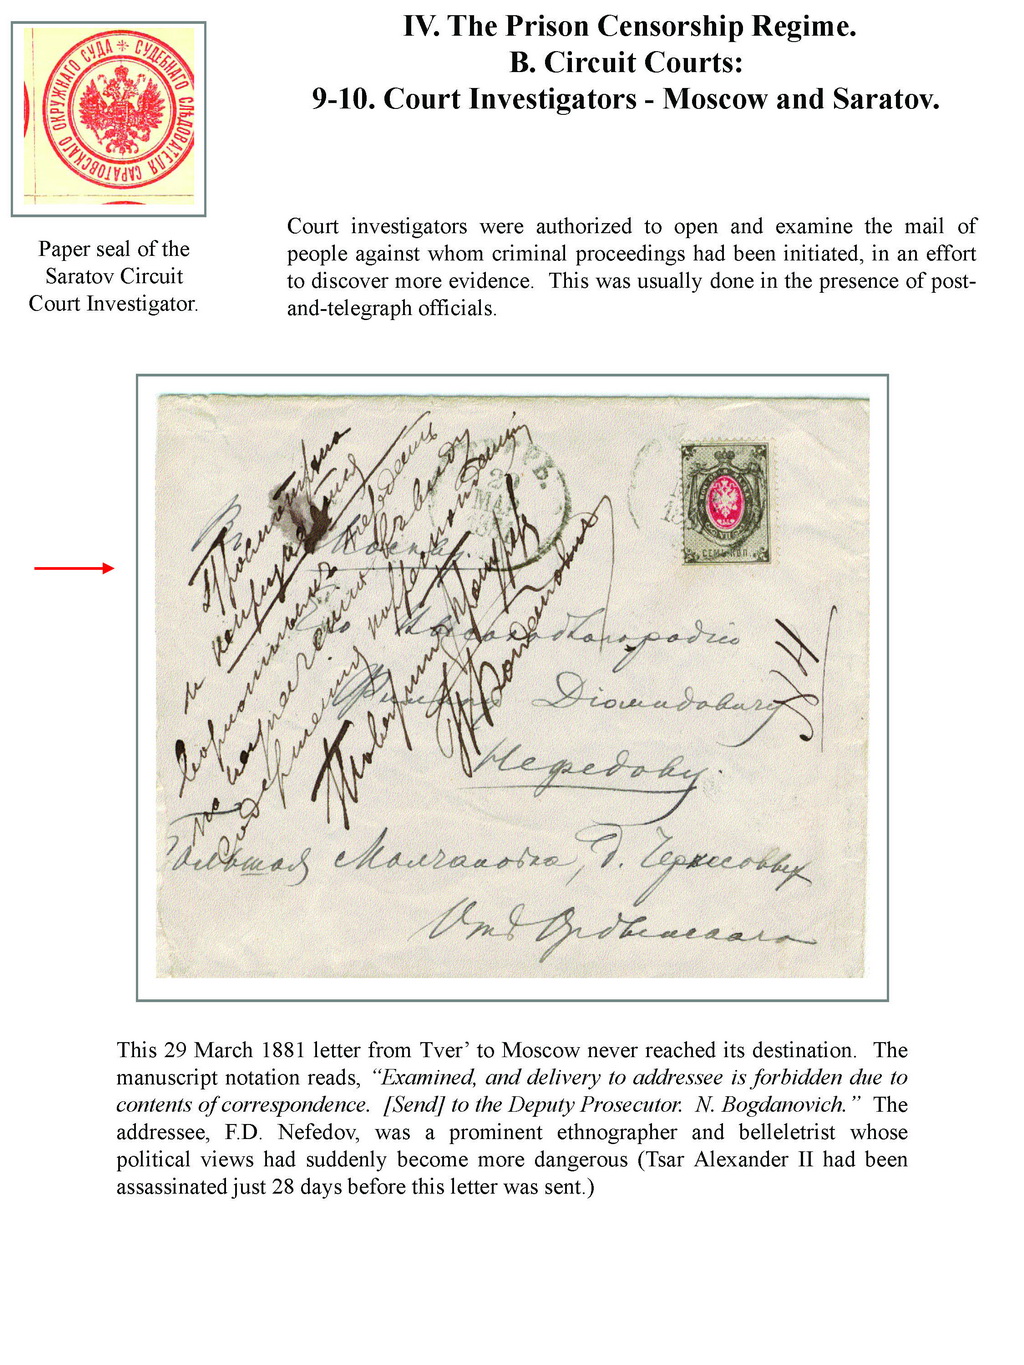 IV. The Prison Censorship Regime.
B. Circuit Courts:
9-10. Court Investigators - Moscow and Saratov.
СУДЕБНАГО СЛѢДОВАТЕЛЯ САРАТОВСКАГО ОКРУЖНАГО СУДА
Paper seal of the
Saratov Circuit
Court Investigator.
Court investigators were authorized to open and examine the mail of
people against whom criminal proceedings had been initiated, in an effort
to discover more evidence. This was usually done in the presence of post-
and-telegraph officials.
СЕМЬ КОП.
Москву.
Его Высокоблагородію
Диомидовичу
Нефедову.
Большая Молчановка, д.
This 29 March 1881 letter from Tver’ to Moscow never reached its destination. The
manuscript notation reads, “Examined, and delivery to addressee is forbidden due to
contents of correspondence. [Send] to the Deputy Prosecutor. N. Bogdanovich.” The
addressee, F.D. Nefedov, was a prominent ethnographer and belleletrist whose
political views had suddenly become more dangerous (Tsar Alexander II had been
assassinated just 28 days before this letter was sent.)